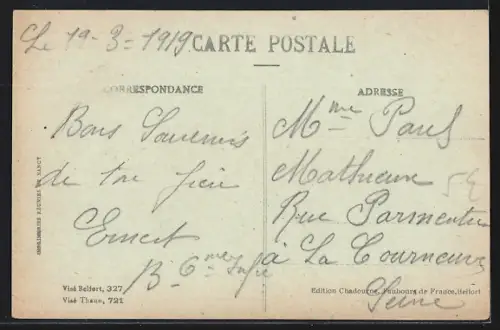 Le 19-3-1919
CARTE POSTALE
CORRESPONDANCE
ADRESSE
Bons Souvenirs
de ton
Ernest
B. 6me
Mme Paul
Mathieu
Rue Parmentier
à La Courneuve
Seine
IMPRIMERIES RÉUNIES DE NANCY
Visé Belfort, 327
Visé Thann, 721
Edition Chadourne, Faubourg de France, Belfort